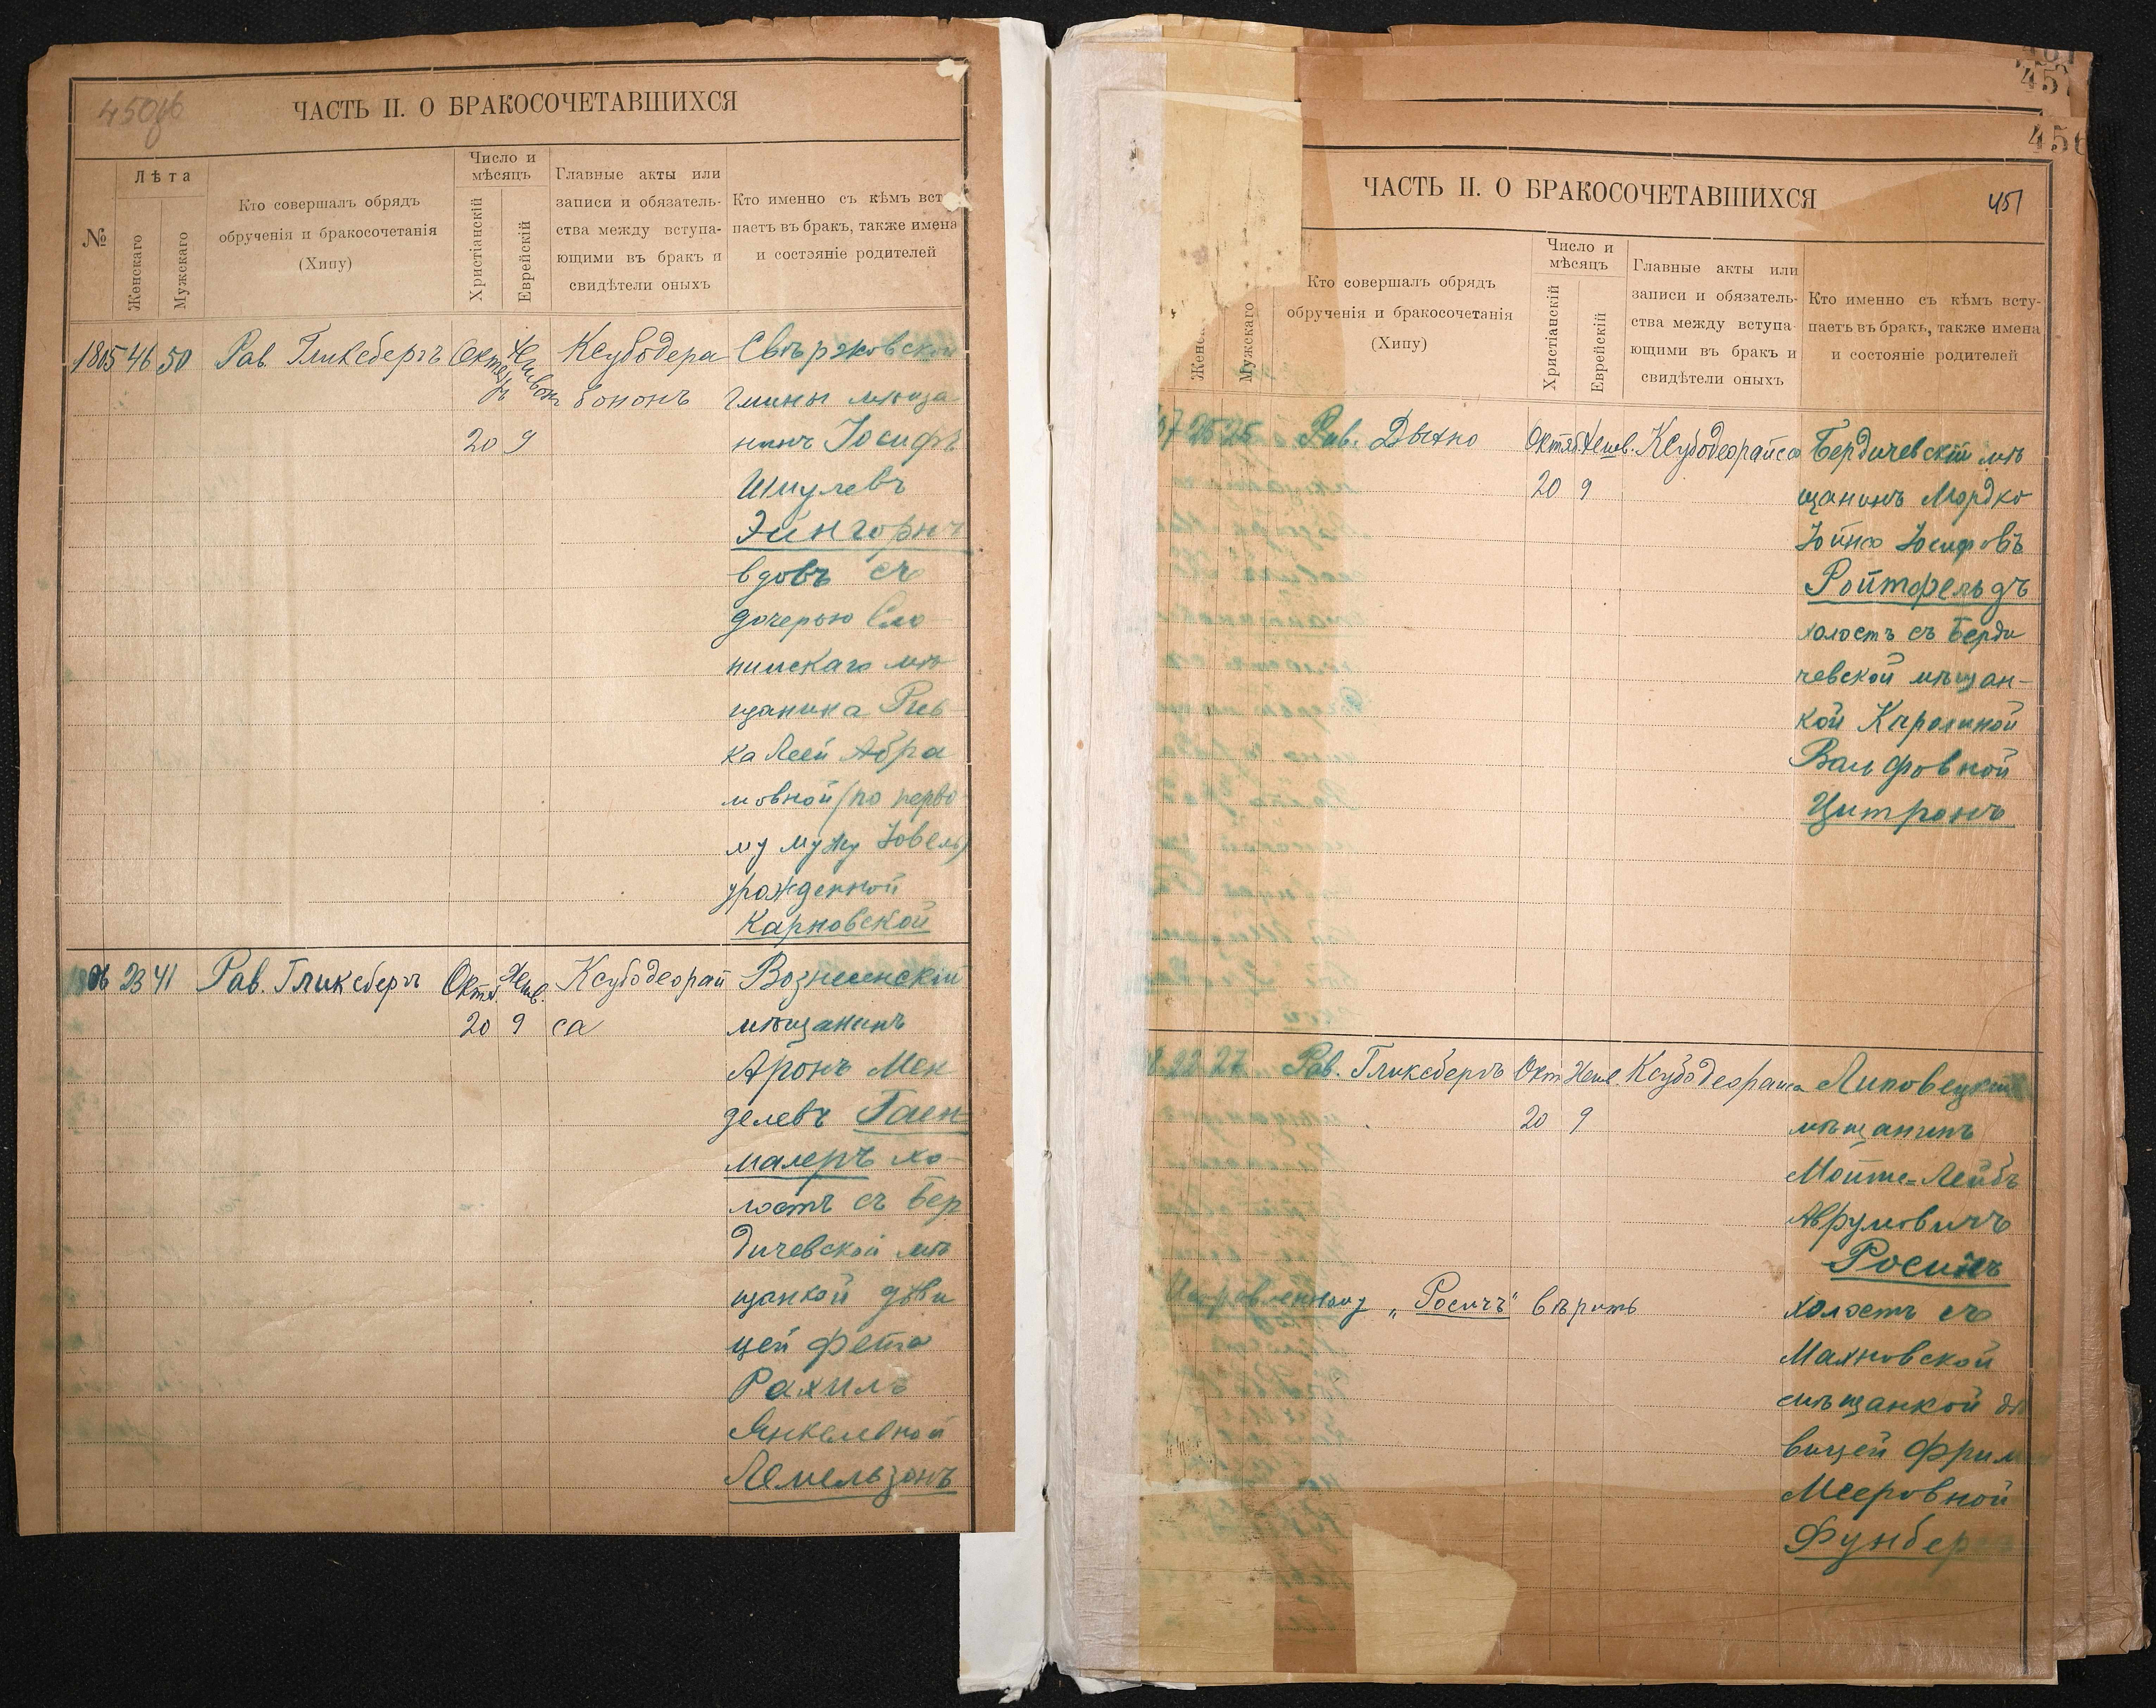 450об
ЧАСТЬ II. О БРАКОСОЧЕТАВШИХСЯ
№
Лѣта
Женскаго
Мужскаго
Кто совершалъ обрядъ
обрученія и бракосочетанія
(Хипу)
Число и
мѣсяцъ
Христіанскій
Еврейскій
Главные акты или
записи и обязатель-
ства между вступа-
ющими въ бракъ и
свидѣтели оныхъ
Кто именно съ кѣмъ вст
паетъ въ бракъ, также имена
и состояніе родителей
1805 46 50 Рав. Гликсбергъ
20 9
Ксубодера
бононъ
Свержовской
гмины мѣща
нинъ Іосифъ
Шмулевъ
Эйнгорнъ
вдовъ съ
дочерью Сло
нимскаго мѣ
щанина Рив
ка Леей Абра
мовной (по перво
му мужу Іовель)
урожденной
Карновской
1806 23 41 Рав. Гликсбергъ Октяб. Хешв.
20 9
Ксубодеорай
са
Вознесенскій
мѣщанинъ
Аронъ Мен
делевъ Гаен
малеръ хо-
лостъ съ Бер
дичевской мѣ
щанкой дѣви
цей Фейга
Рахиль
Янкелевной
Лемельзонъ
457
456
451
ЧАСТЬ II. О БРАКОСОЧЕТАВШИХСЯ
Мужскаго
Кто совершалъ обрядъ
обрученія и бракосочетанія
(Хипу)
Число и
мѣсяцъ
Христіанскій
Еврейскій
Главные акты или
записи и обязатель-
ства между вступа-
ющими въ бракъ и
свидѣтели оныхъ
Кто именно съ кѣмъ всту-
паетъ въ бракъ, также имена
и состояніе родителей
25 25 Рав. Дыхно Октяб. Хешв. Ксубодеорайса
20 9
Бердичевскій мѣ
щанинъ Мордко
Іойна Іосифовъ
Ройтфельдъ
холостъ съ Берди
чевской мѣщан-
кой Каролиной
Вольфовной
Цитронъ
22 27 Рав. Гликсбергъ Окт. Хешв. Ксубодеорайса
20 9
Липовецкій
мѣщанинъ
Мойше-Лейбъ
Аврумовичъ
Росичъ
Исправленному „Росичъ" вѣрить
холостъ съ
Махновской
мѣщанкой дѣ
вицей Фрима
Мееровной
Фунберг